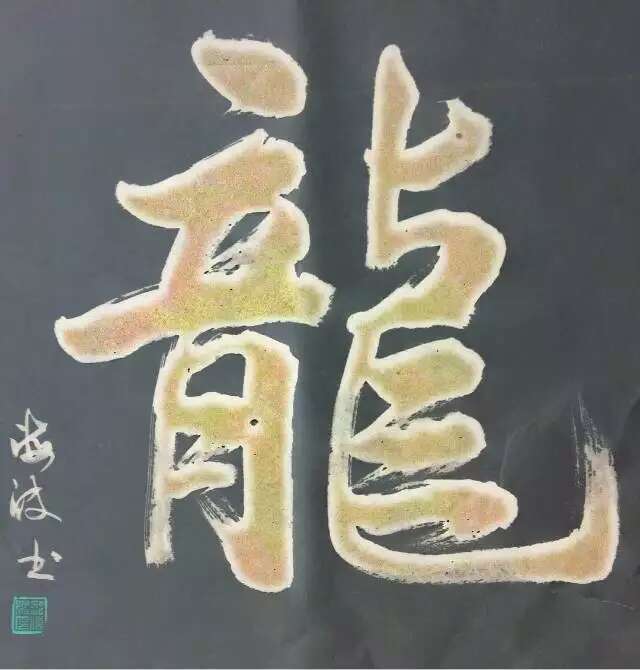 龍
海波书